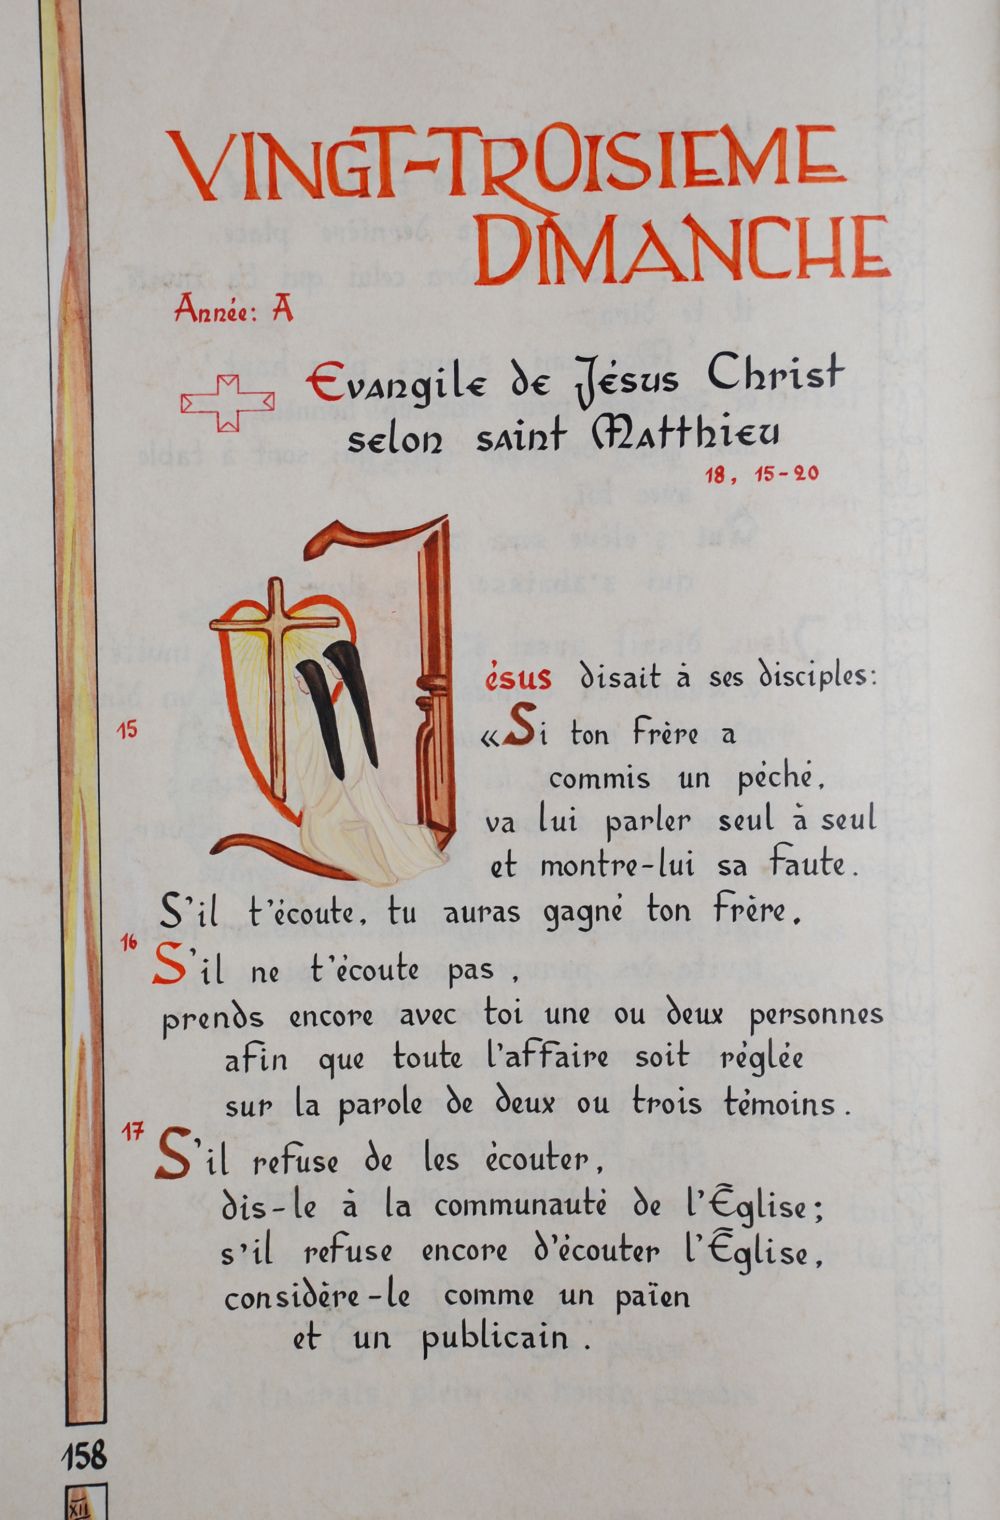 VINGT-TROISIEME
DIMANCHE
Année: A
Evangile de Jésus Christ
selon saint Matthieu
18, 15-20
Jésus disait à ses disciples:
15
«Si ton frère a
commis un péché,
va lui parler seul à seul
et montre-lui sa faute.
S'il t'écoute, tu auras gagné ton frère.
16
S'il ne t'écoute pas,
prends encore avec toi une ou deux personnes
afin que toute l'affaire soit réglée
sur la parole de deux ou trois témoins.
17
S'il refuse de les écouter,
dis-le à la communauté de l'Église;
s'il refuse encore d'écouter l'Église,
considère-le comme un païen
et un publicain.
158
XII